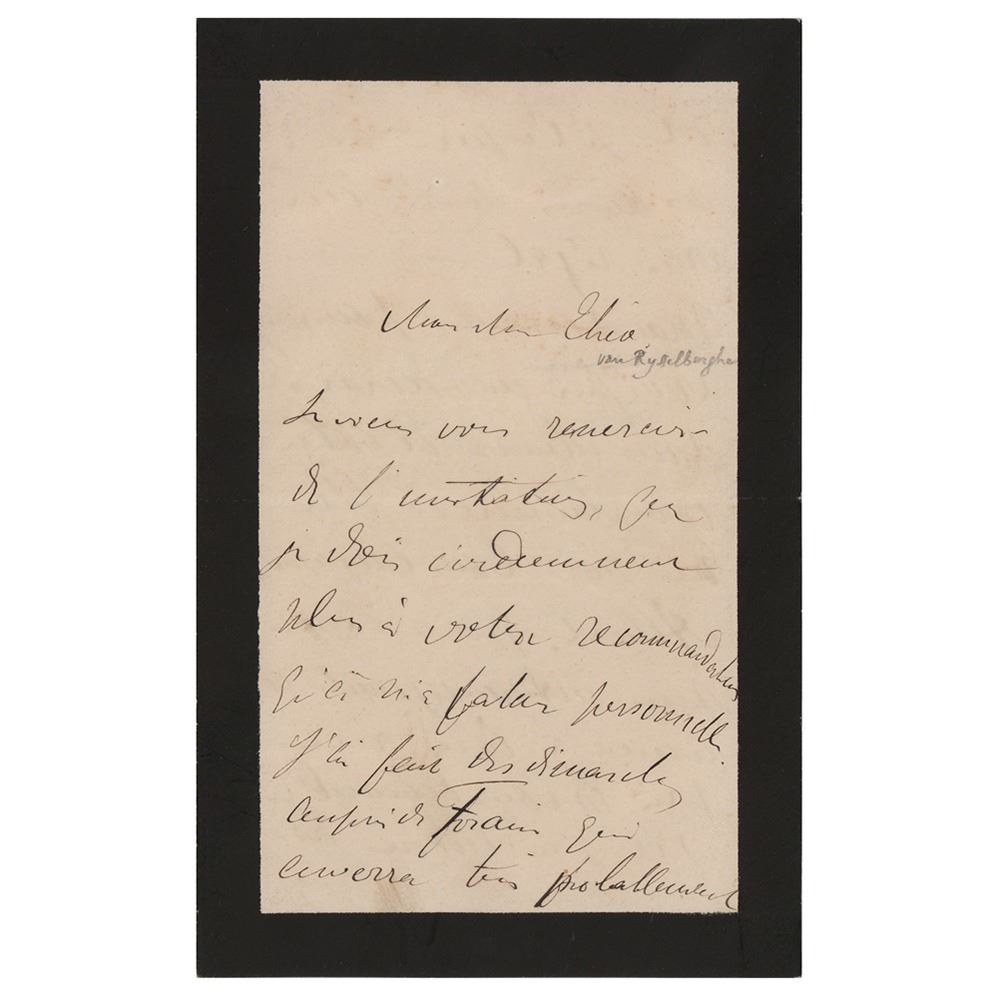 Mon cher Théo,
van Rysselberghe
Je viens vous remercier
de l'invitation, que
je dois évidemment
plus à votre recommandation
qu'à ma valeur personnelle.
J'ai fait des démarches
auprès de Forain qui
enverra très probablement